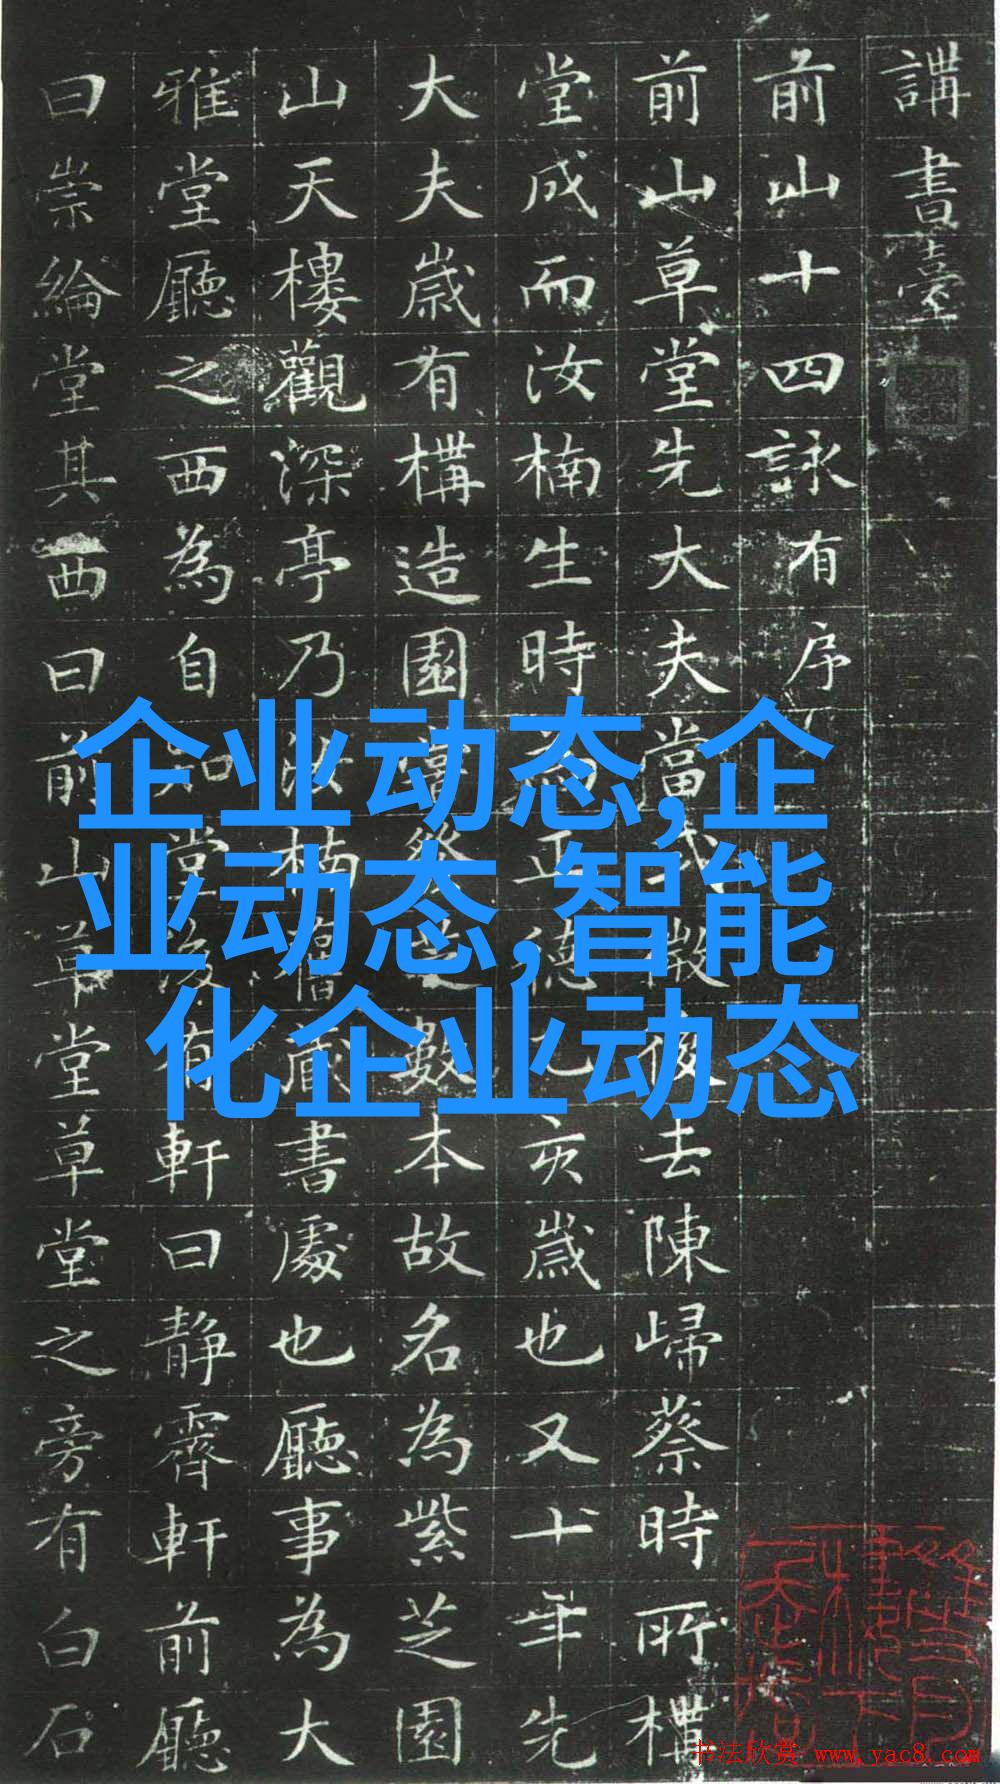 講書臺
前山十四詠有序
前山草堂先大夫當後去陳歸蔡時所構
堂成而汝楠生時正德亥歲也又十年先
大夫歲有構造園數本故名為紫芝園
山天樓觀深亭乃汝楠舊藏書處也廳事為大
雅堂廳之西為自知堂後有軒曰靜霽軒前廳
曰崇綸堂其西曰前山草堂草堂之旁有白石
企业动态,企
业动态,智能
化企业动态
书法欣赏 www.yac8.com